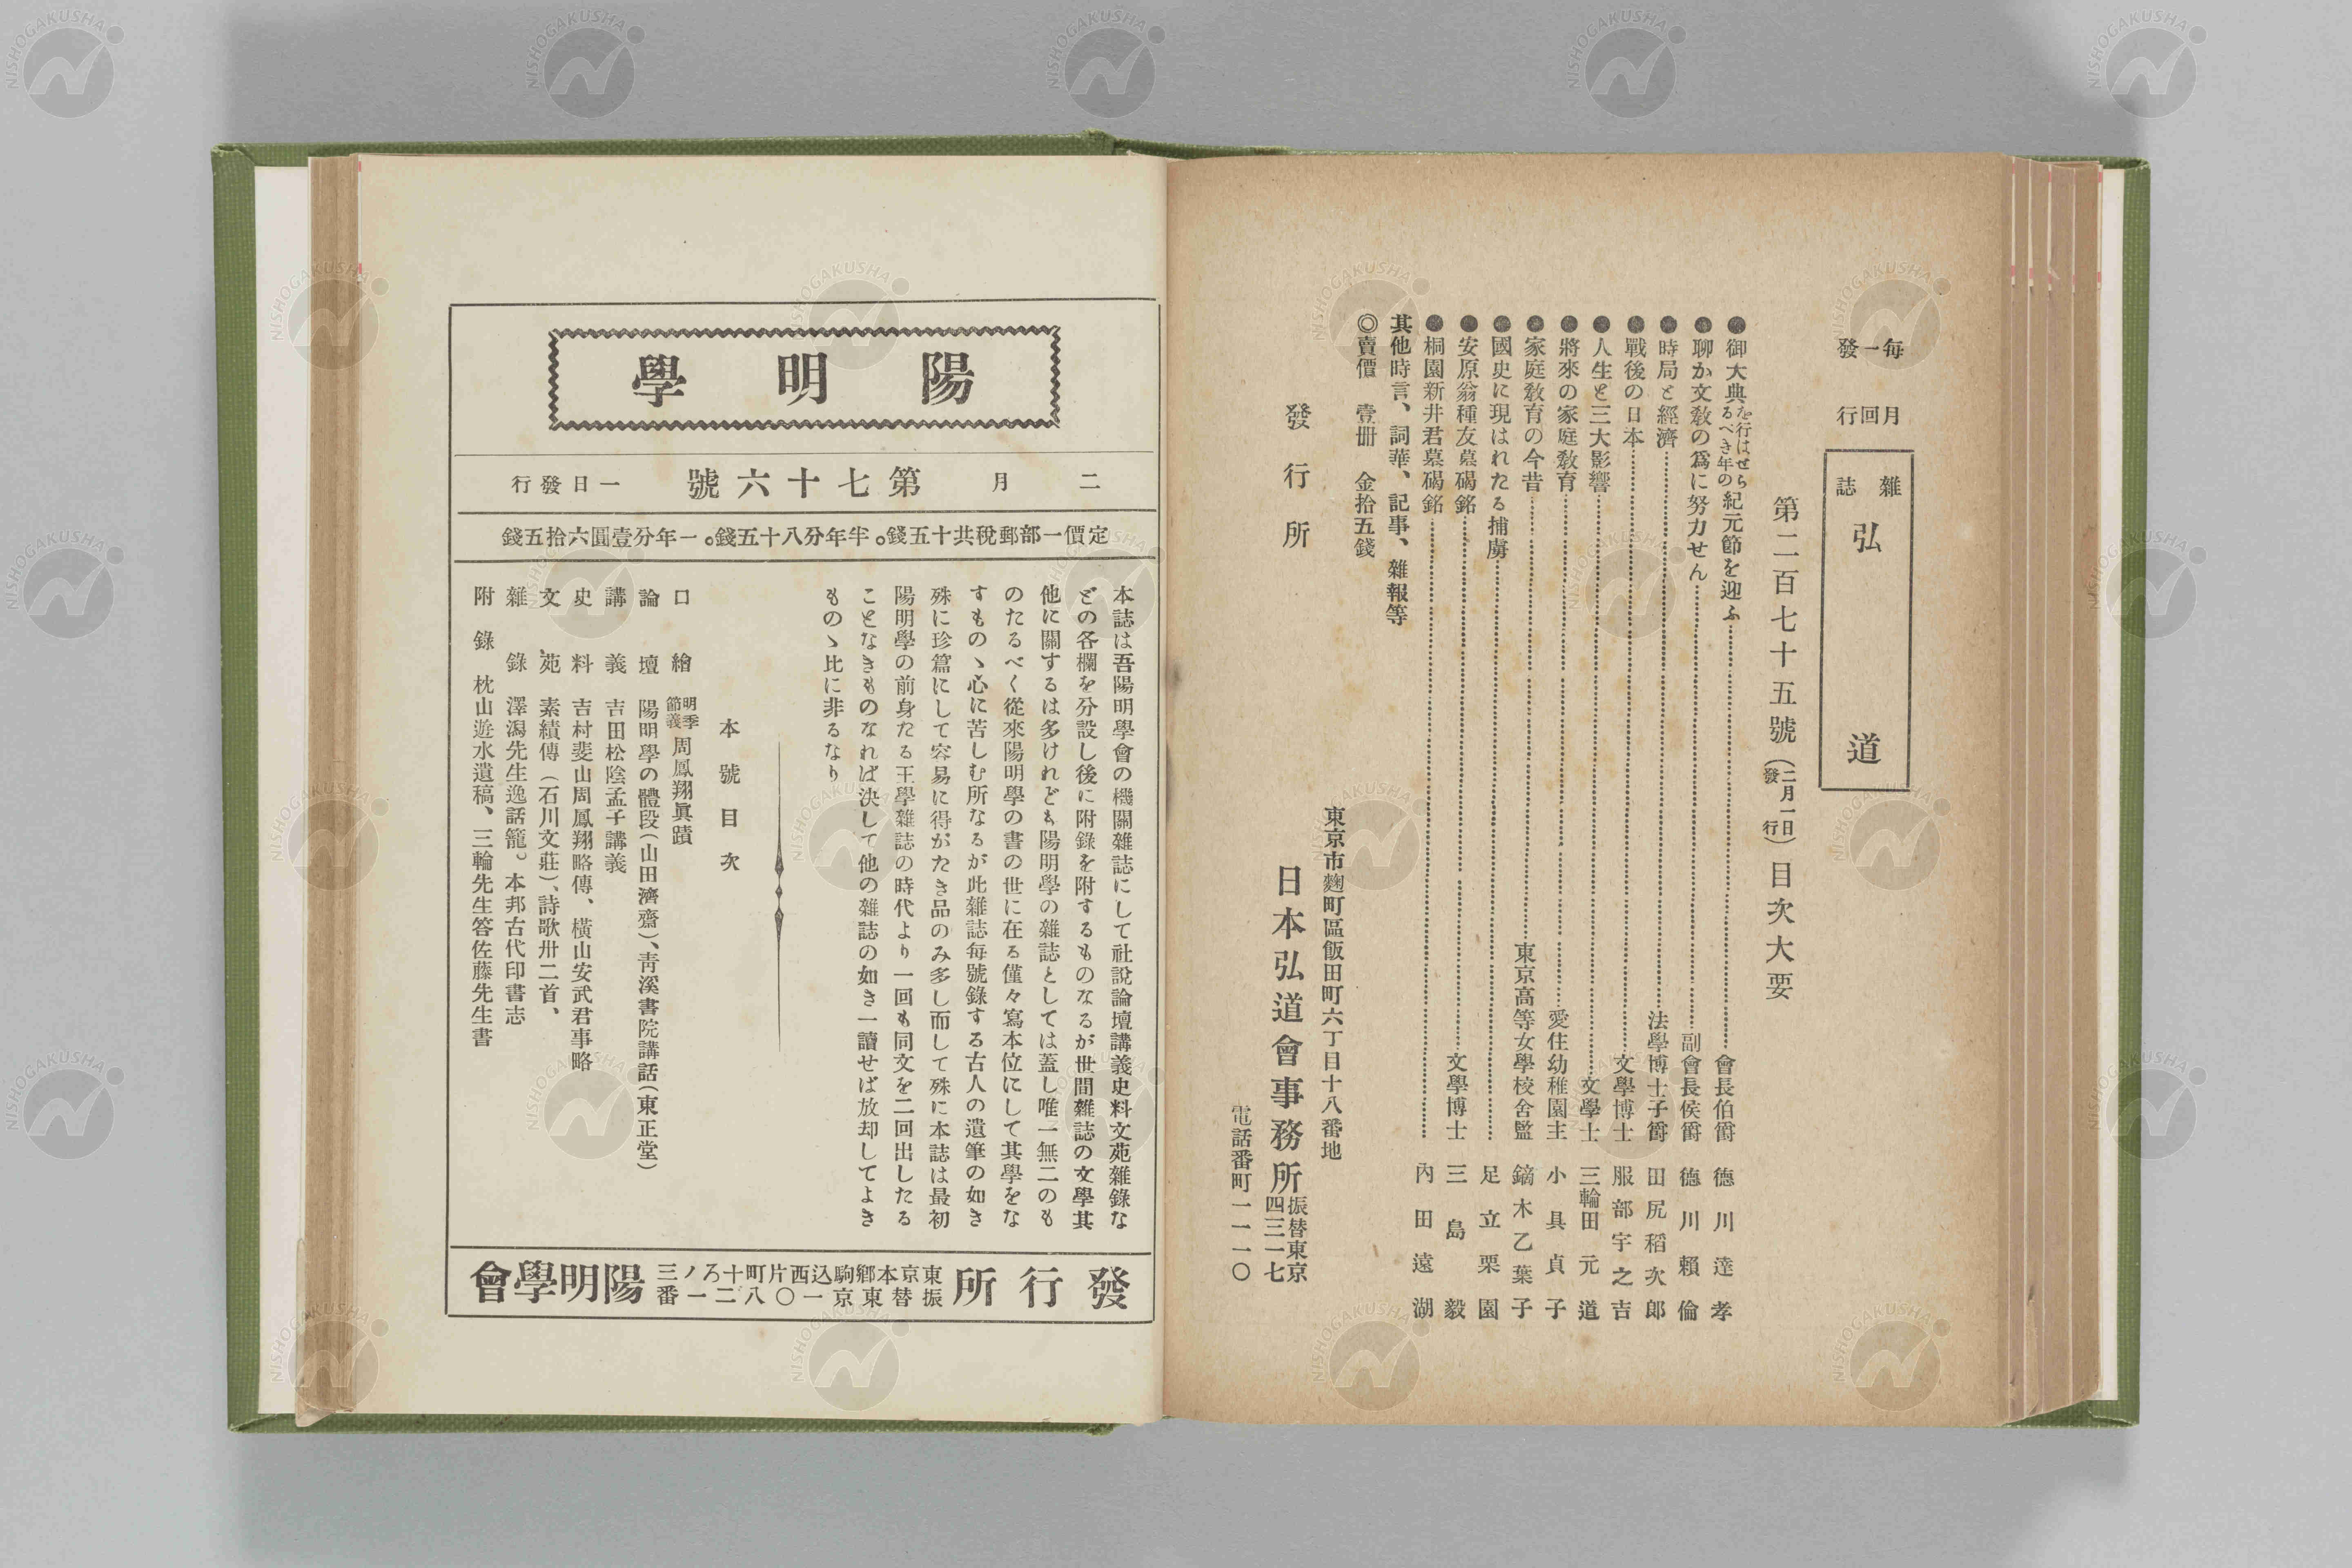 毎月一回發行
雜誌 弘道
第二百七十五號（二月一日發行）目次大要
●御大典を行はせらるべき年の紀元節を迎ふ 會長伯爵 德川達孝
●聊か文敎の爲に努力せん 副會長侯爵 德川賴倫
●時局と經濟 法學博士子爵 田尻稻次郎
●戰後の日本 文學博士 服部宇之吉
●人生と三大影響 文學士 三輪田元道
●將來の家庭敎育 愛住幼稚園主 小具貞子
●家庭敎育の今昔 東京高等女學校舍監 鏑木乙葉子
●國史に現はれたる捕虜 足立栗園
●安原翁種友墓碣銘 文學博士 三島毅
●桐園新井君墓碣銘 內田遠湖
其他時言、詞華、記事、雜報等
◎賣價 壹册 金拾五錢
東京市麴町區飯田町六丁目十八番地
發行所 日本弘道會事務所 振替東京四三一七
電話番町一一一〇
陽明學
二月 第七十六號 一日發行
定價一部郵稅共十五錢。半年分八十五錢。一年分壹圓六拾五錢
本誌は吾陽明學會の機關雜誌にして社說論壇講義史料文苑雜錄な
どの各欄を分設し後に附錄を附するものなるが世間雜誌の文學其
他に關するは多けれども陽明學の雜誌としては蓋し唯一無二のも
のたるべく從來陽明學の書の世に在る僅々寫本位にして其學をな
すものゝ心に苦しむ所なるが此雜誌每號錄する古人の遺筆の如き
殊に珍篇にして容易に得がたき品のみ多し而して殊に本誌は最初
陽明學の前身たる王學雜誌の時代より一回も同文を二回出したる
ことなきものなれば決して他の雜誌の如き一讀せば放却してよき
ものゝ比に非るなり
本號目次
口繪 明季節義 周鳳翔眞蹟
論壇 陽明學の體段（山田濟齋）、靑溪書院講話（東正堂）
講義 吉田松陰孟子講義
史料 吉村斐山周鳳翔略傳、橫山安武君事略
文苑 素績傳（石川文莊）、詩歌卅二首、
雜錄 澤瀉先生逸話籠。本邦古代印書志
附錄 枕山遊水遺稿、三輪先生答佐藤先生書
發行所 東京本鄕駒込西片町十ろノ三 振替東京一〇八二一番 陽明學會
NISHOGAKUSHA